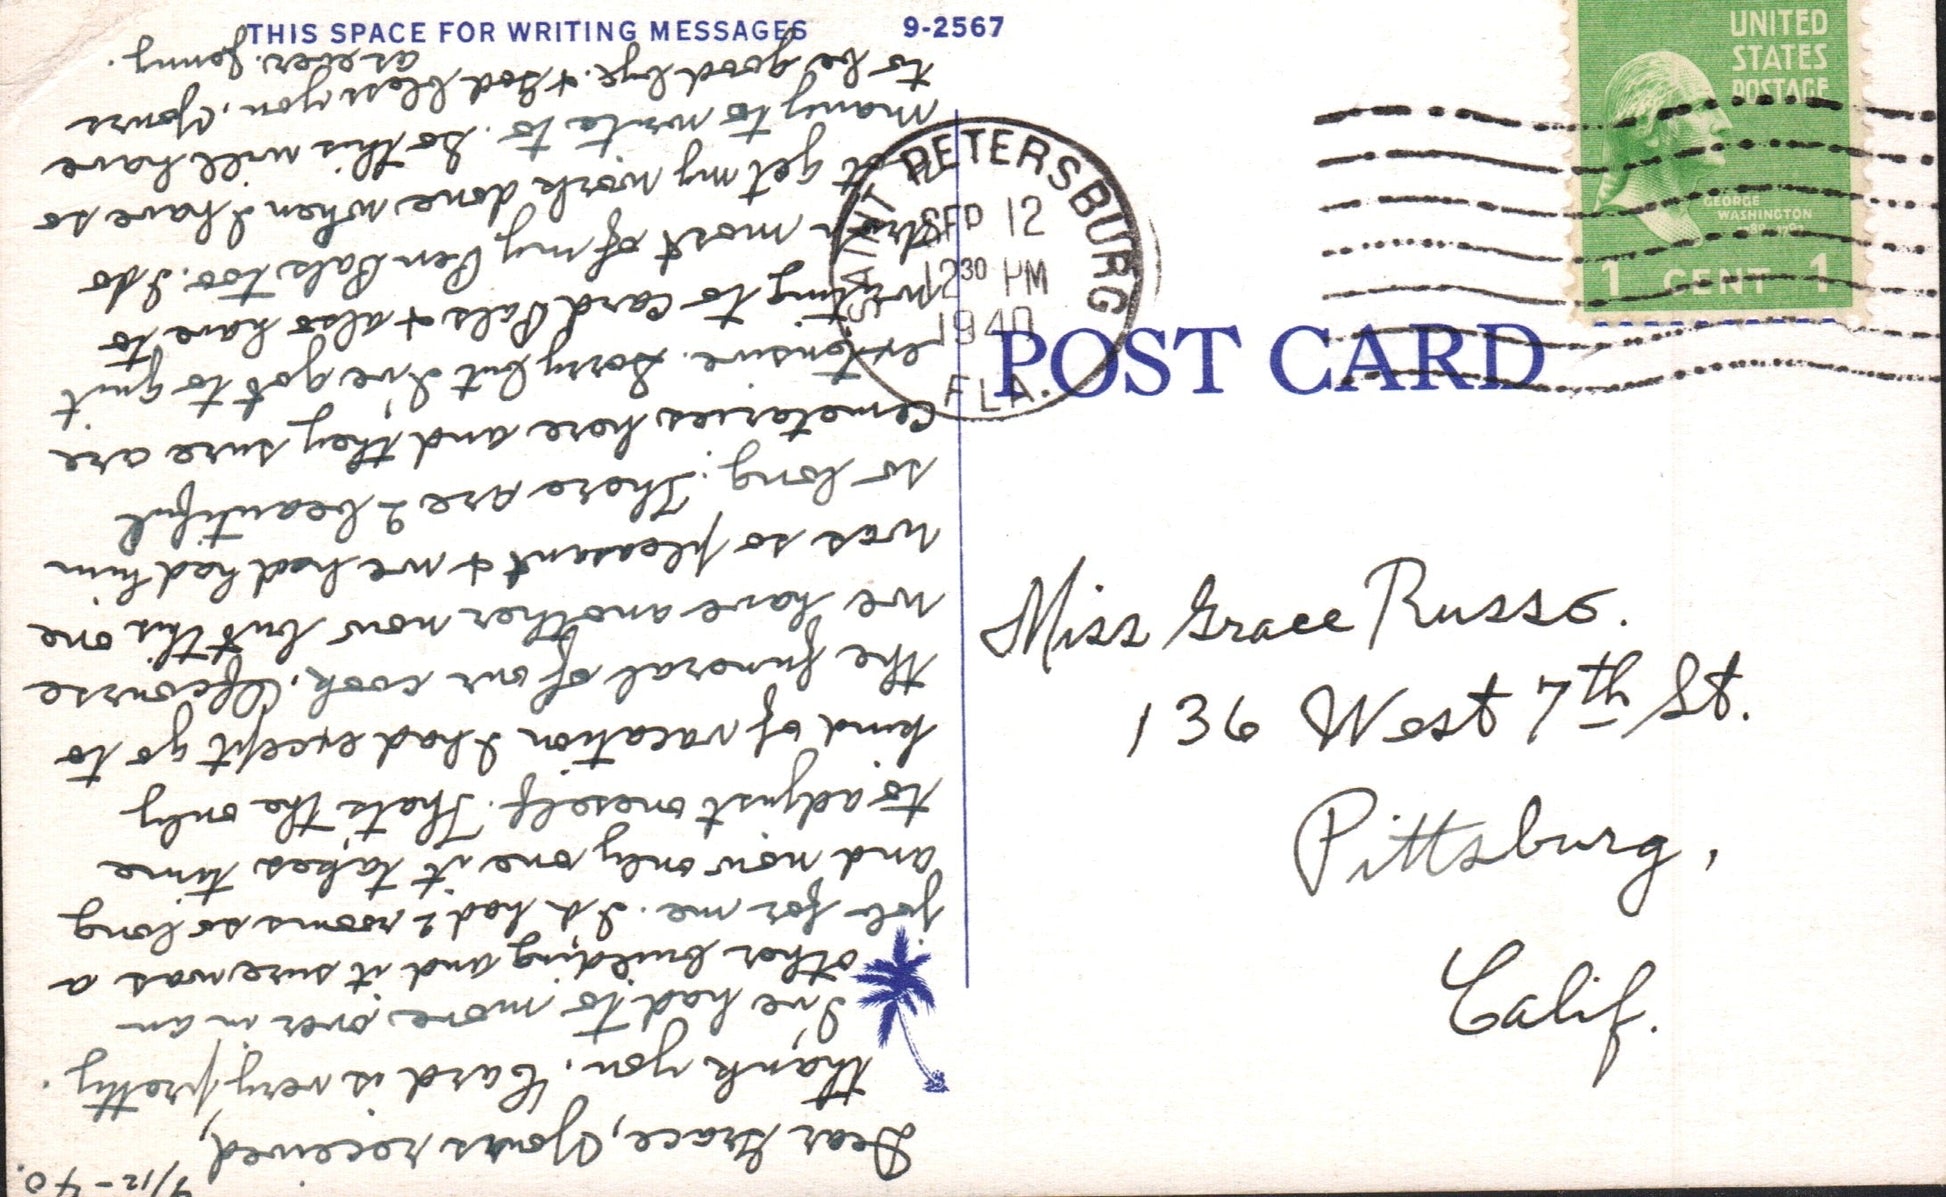 THIS SPACE FOR WRITING MESSAGES
9-2567
9/12-40.
Dear Grace, Yours received,
thank you. Card is very pretty.
I've had to move over in an
other building and it sure was a
job for me. I'd had 2 rooms so long
and now only one it takes time
to adjust oneself. Thats the only
kind of vacation I had except go to
the funeral of our cook. Ofcourse
we have another now but this one
was so pleasant & we had had him
so long. There are 2 beautiful
Cemetaries here and they sure are
extensive. Sorry but I've got to quit
writing to Card Pals & also have to
with most of my Pen Pals too. I do
not get my work done when I have so
many to write to. So this will have
to be good bye. & God bless you. Yours
as ever. Jenny.
SAINT PETERSBURG
SEP 12
12 30 PM
1940
FLA.
UNITED
STATES
POSTAGE
GEORGE
WASHINGTON
1 CENT 1
POST CARD
Miss Grace Russo.
136 West 7th St.
Pittsburg,
Calif.